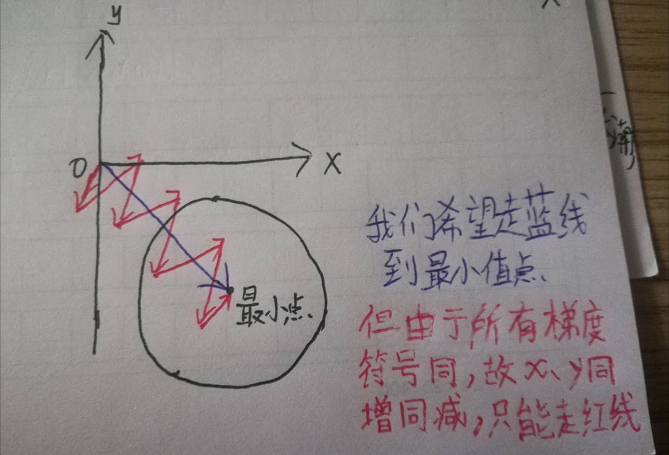 y
O
x
最小点
我们希望走蓝线
到最小值点.
但由于所有梯度
符号同,故x、y同
增同减,只能走红线